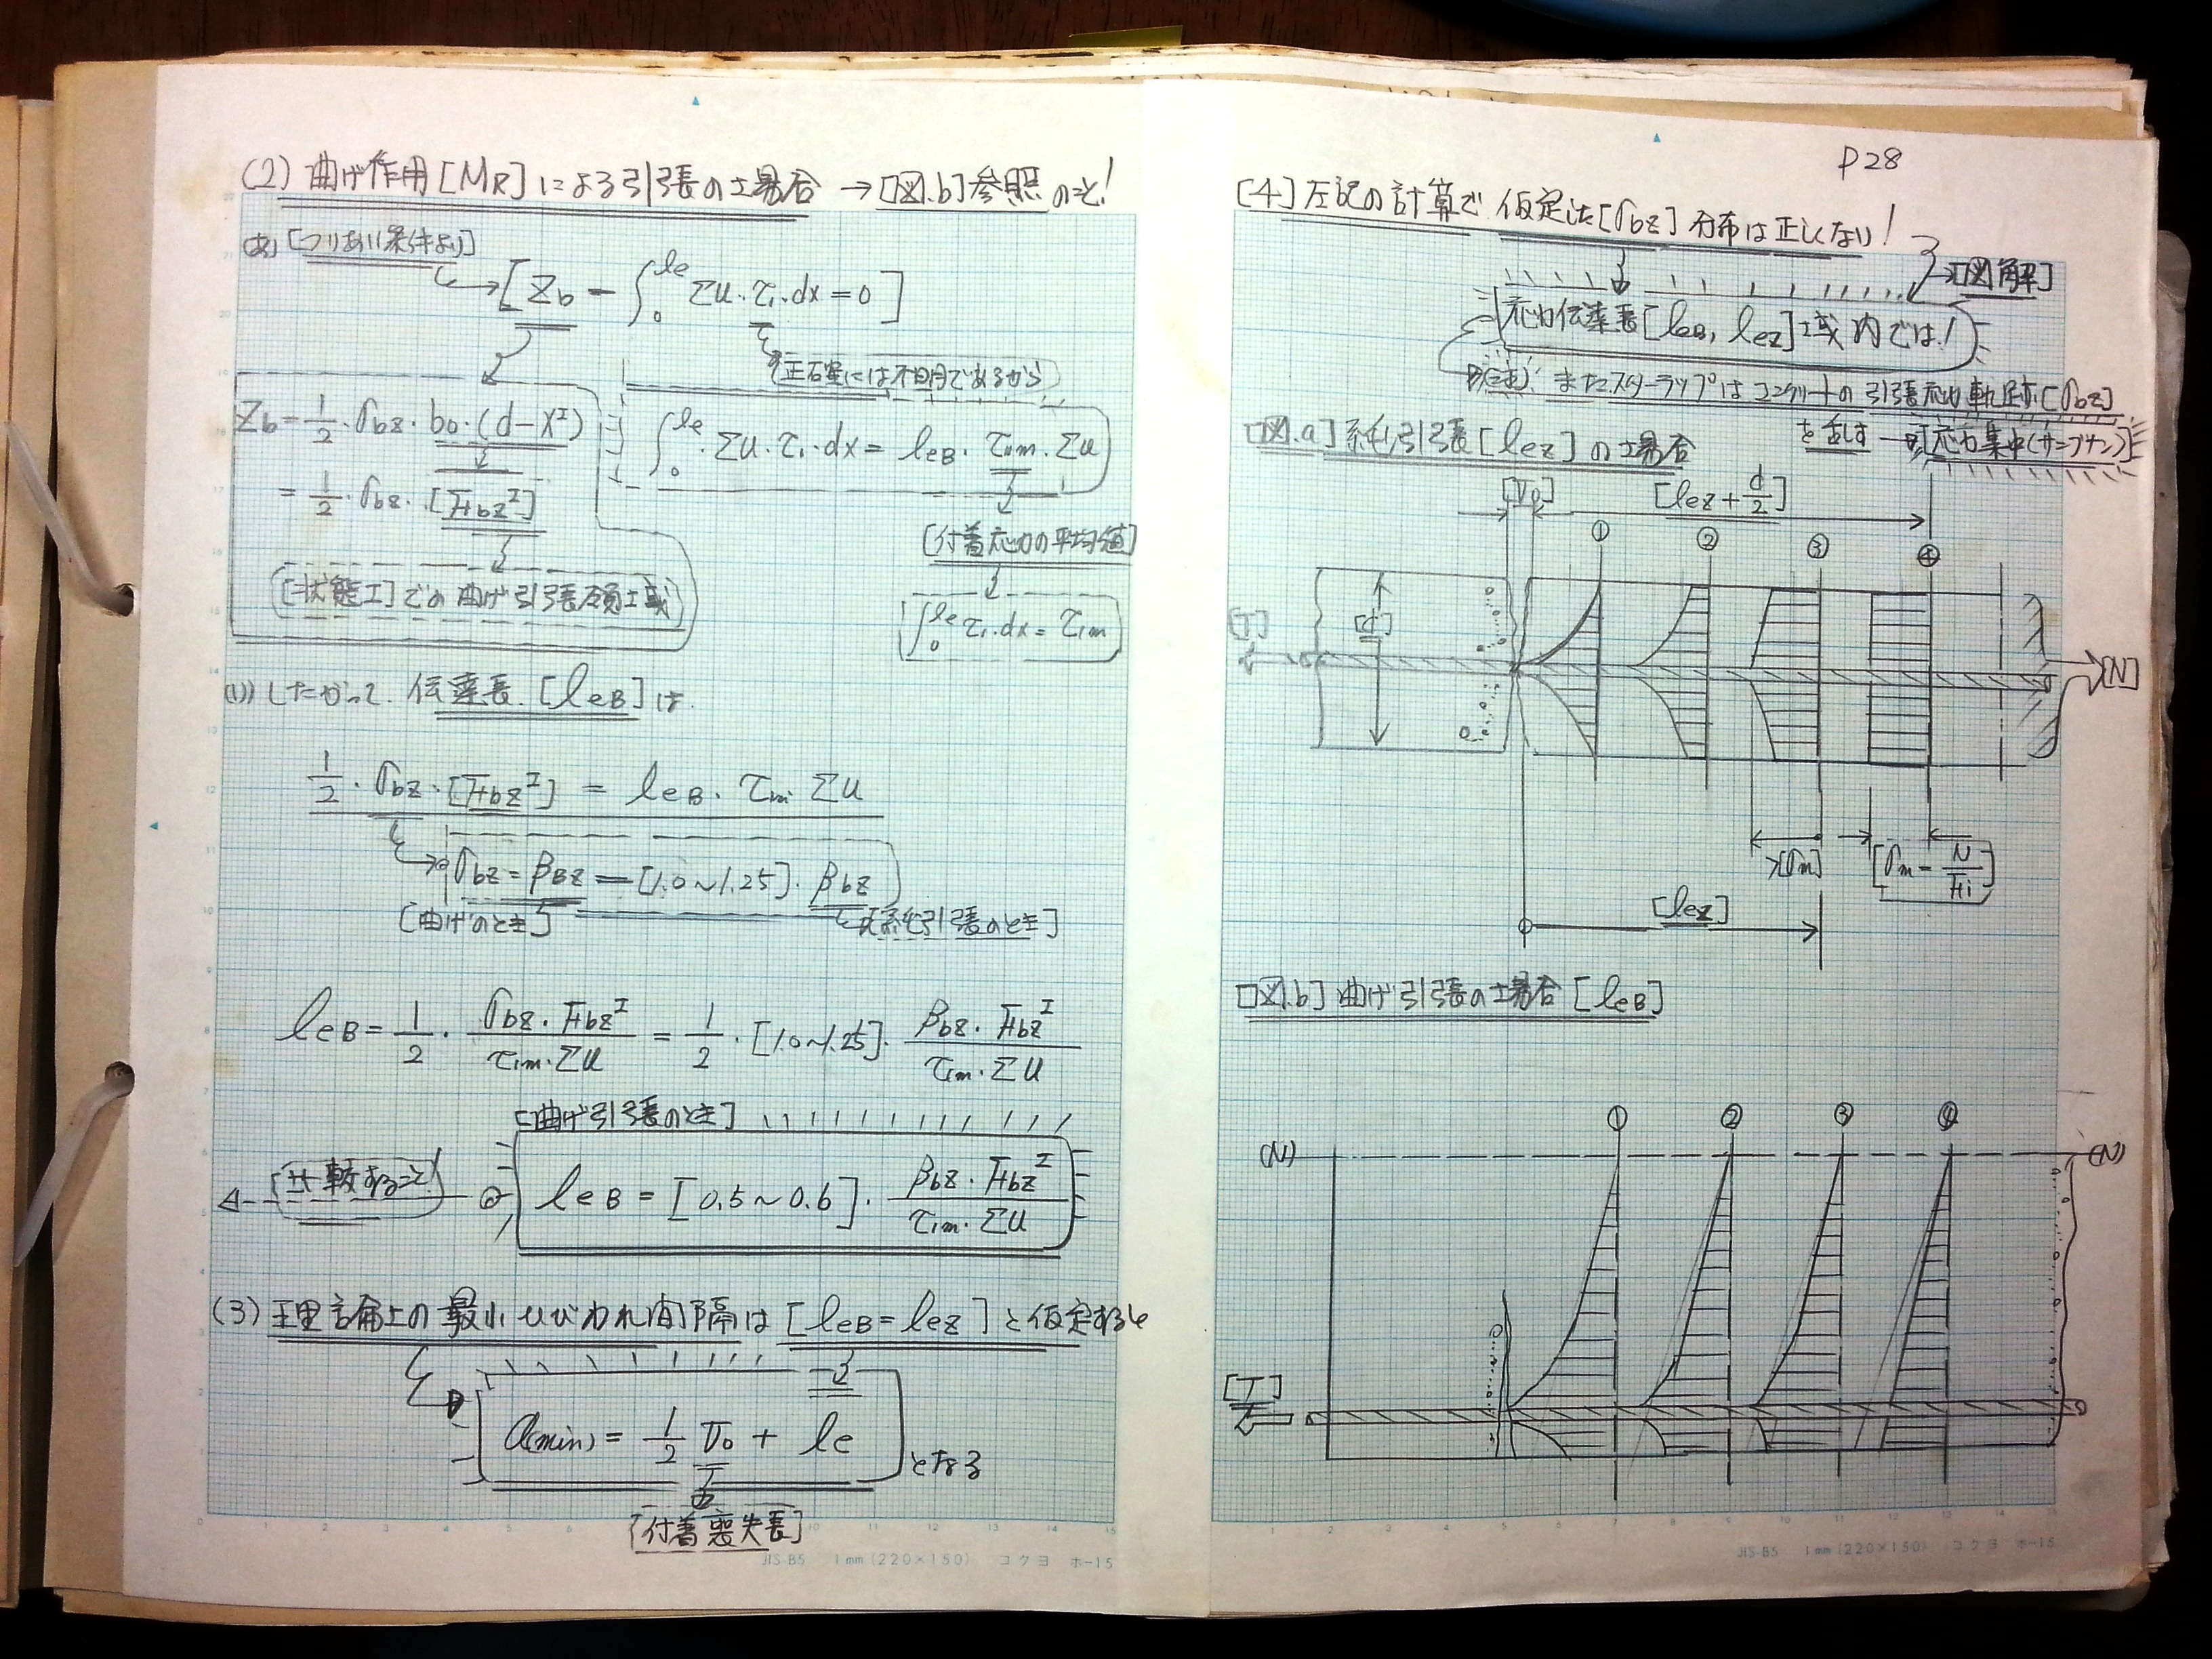 (2) 曲げ作用[MR]による引張の場合 → [図.b]参照のこと!
(あ) [つりあい条件より]
[Zb − ∫₀^le ΣU・τ₁・dx = 0]
正確には不明であるから
Zb = 1/2・σbz・b₀・(d−x^I)
= 1/2・σbz・[Fbz^I]
[状態I]での曲げ引張領域
∫₀^le・ΣU・τ₁・dx = leB・τ₁m・ΣU
[付着応力の平均値]
∫₀^le τ₁・dx = τ₁m
(い) したがって、伝達長 [leB]は
1/2・σbz・[Fbz^I] = leB・τ₁m ΣU
σbz = βBz = [1.0~1.25]・βbz
[曲げのとき]
[純引張のとき]
leB = 1/2・σbz・Fbz^I / τ₁m・ΣU = 1/2・[1.0~1.25]・βbz・Fbz^I / τ₁m・ΣU
[曲げ引張のとき]
[比較すること!]
leB = [0.5~0.6]・βbz・Fbz^I / τ₁m・ΣU
(3) 理論上の最小ひびわれ間隔は [leB=lez]と仮定すると
a(min) = 1/2 V₀ + le
となる
[付着喪失長]
JIS-B5 1mm(220×150) コクヨ ホ-15
P28
[4] 左記の計算で仮定した[σbz]分布は正しくない!
[図解]
応力伝達長[leB, lez]域内では!
(注) またスターラップはコンクリートの引張応力軌跡[σbz]
を乱す → 応力集中
[図.a] 純引張[lez]の場合
[V₀]
[lez + d/2]
① ② ③ ④
[T]
[d]
[N]
>[σm]
[σm = N/Fi]
[lez]
[図.b] 曲げ引張の場合[leB]
① ② ③ ④
(N)
(N)
[T]
JIS-B5 1mm(220×150) コクヨ ホ-15